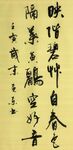 映階碧草自春色
隔葉黃鸝空好音